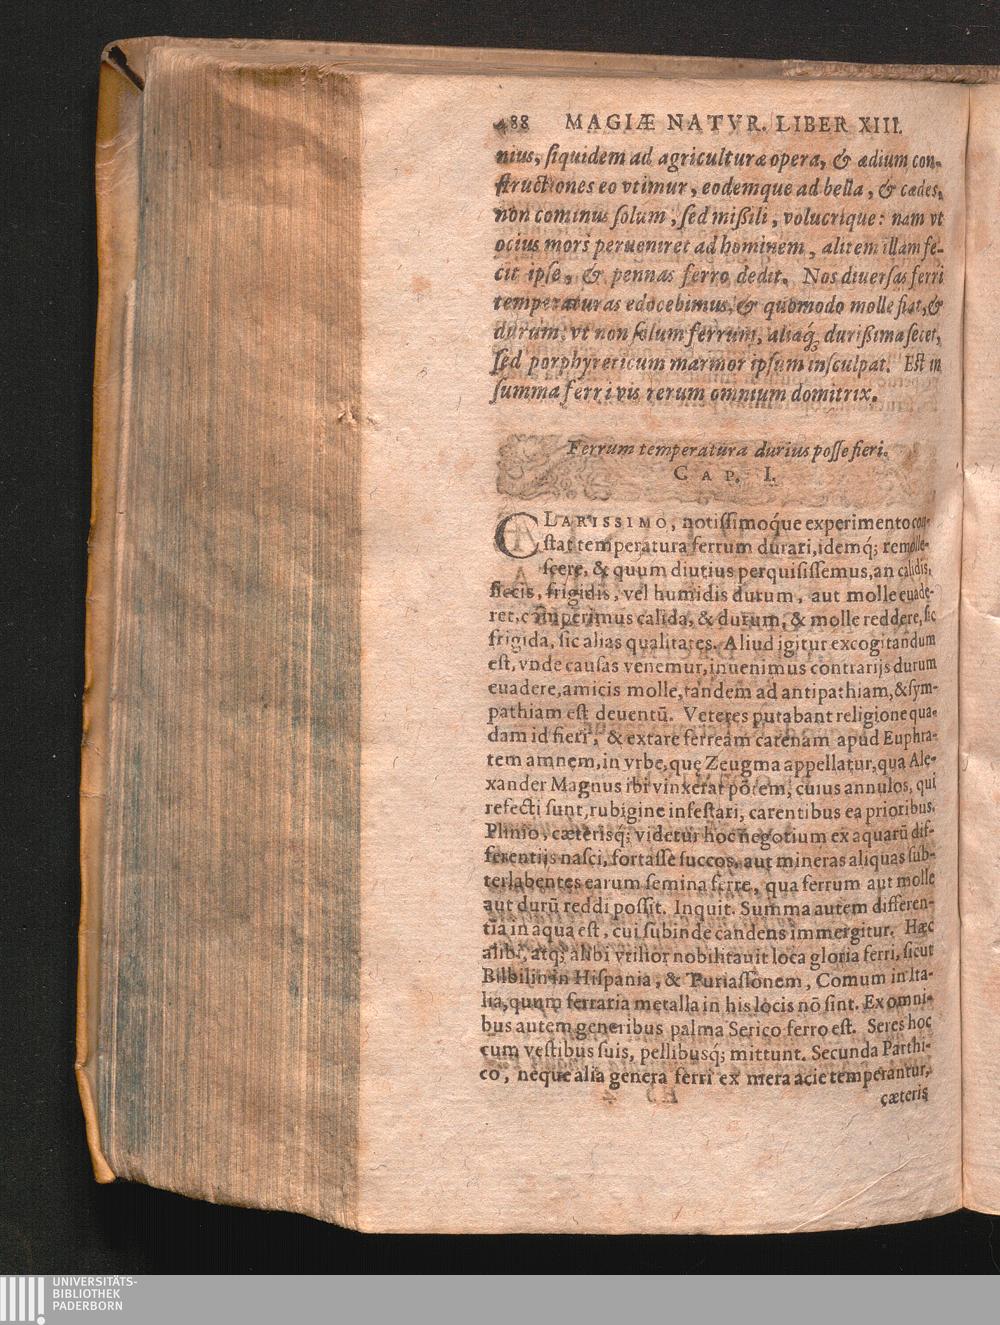 488 MAGIÆ NATVR. LIBER XIII.
nius, siquidem ad agriculturæ opera, & ædium con-
structiones eo vtimur, eodemque ad bella, & cædes,
non cominus solum, sed missili, volucrique: nam vt
ocius mors perueniret ad hominem, alitem illam fe-
cit ipse, & pennas ferro dedit. Nos diuersas ferri
temperaturas edocebimus, & quomodo molle fiat, &
durum, vt non solum ferrum, aliaq́; durissima secet,
sed porphyrericum marmor ipsum insculpat. Est in
summa ferri vis rerum omnium domitrix.
Ferrum temperatura durius posse fieri.
CAP. I.
CLARISSIMO, notissimoq́ue experimento con-
stat temperatura ferrum durari, idemq́; remolle-
scere, & quum diutius perquisissemus, an calidis,
siccis, frigidis, vel humidis durum, aut molle euade-
ret, comperimus calida, & durum, & molle reddere, sic
frigida, sic alias qualitates. Aliud igitur excogitandum
est, vnde causas venemur, inuenimus contrarijs durum
euadere, amicis molle, tandem ad antipathiam, & sym-
pathiam est deuentū. Veteres putabant religione qua-
dam id fieri, & extare ferream catenam apud Euphra-
tem amnem, in vrbe, quę Zeugma appellatur, qua Ale-
xander Magnus ibi vinxerat pōtem, cuius annulos, qui
refecti sunt, rubigine infestari, carentibus ea prioribus.
Plinio, cæterisq́; videtur hoc negotium ex aquarū dif-
ferentijs nasci, fortasse succos, aut mineras aliquas sub-
terlabentes earum semina ferre, qua ferrum aut molle
aut durū reddi possit. Inquit. Summa autem differen-
tia in aqua est, cui subinde candens immergitur. Hæc
alibi, atq; alibi vtilior nobilitauit loca gloria ferri, sicut
Bilbilin in Hispania, & Turiassonem, Comum in Ita-
lia, quum ferraria metalla in his locis nō sint. Ex omni-
bus autem generibus palma Serico ferro est. Seres hoc
cum vestibus suis, pellibusq́; mittunt. Secunda Parthi-
co, neque alia genera ferri ex mera acie temperantur,
cæteris
UNIVERSITÄTS-
BIBLIOTHEK
PADERBORN